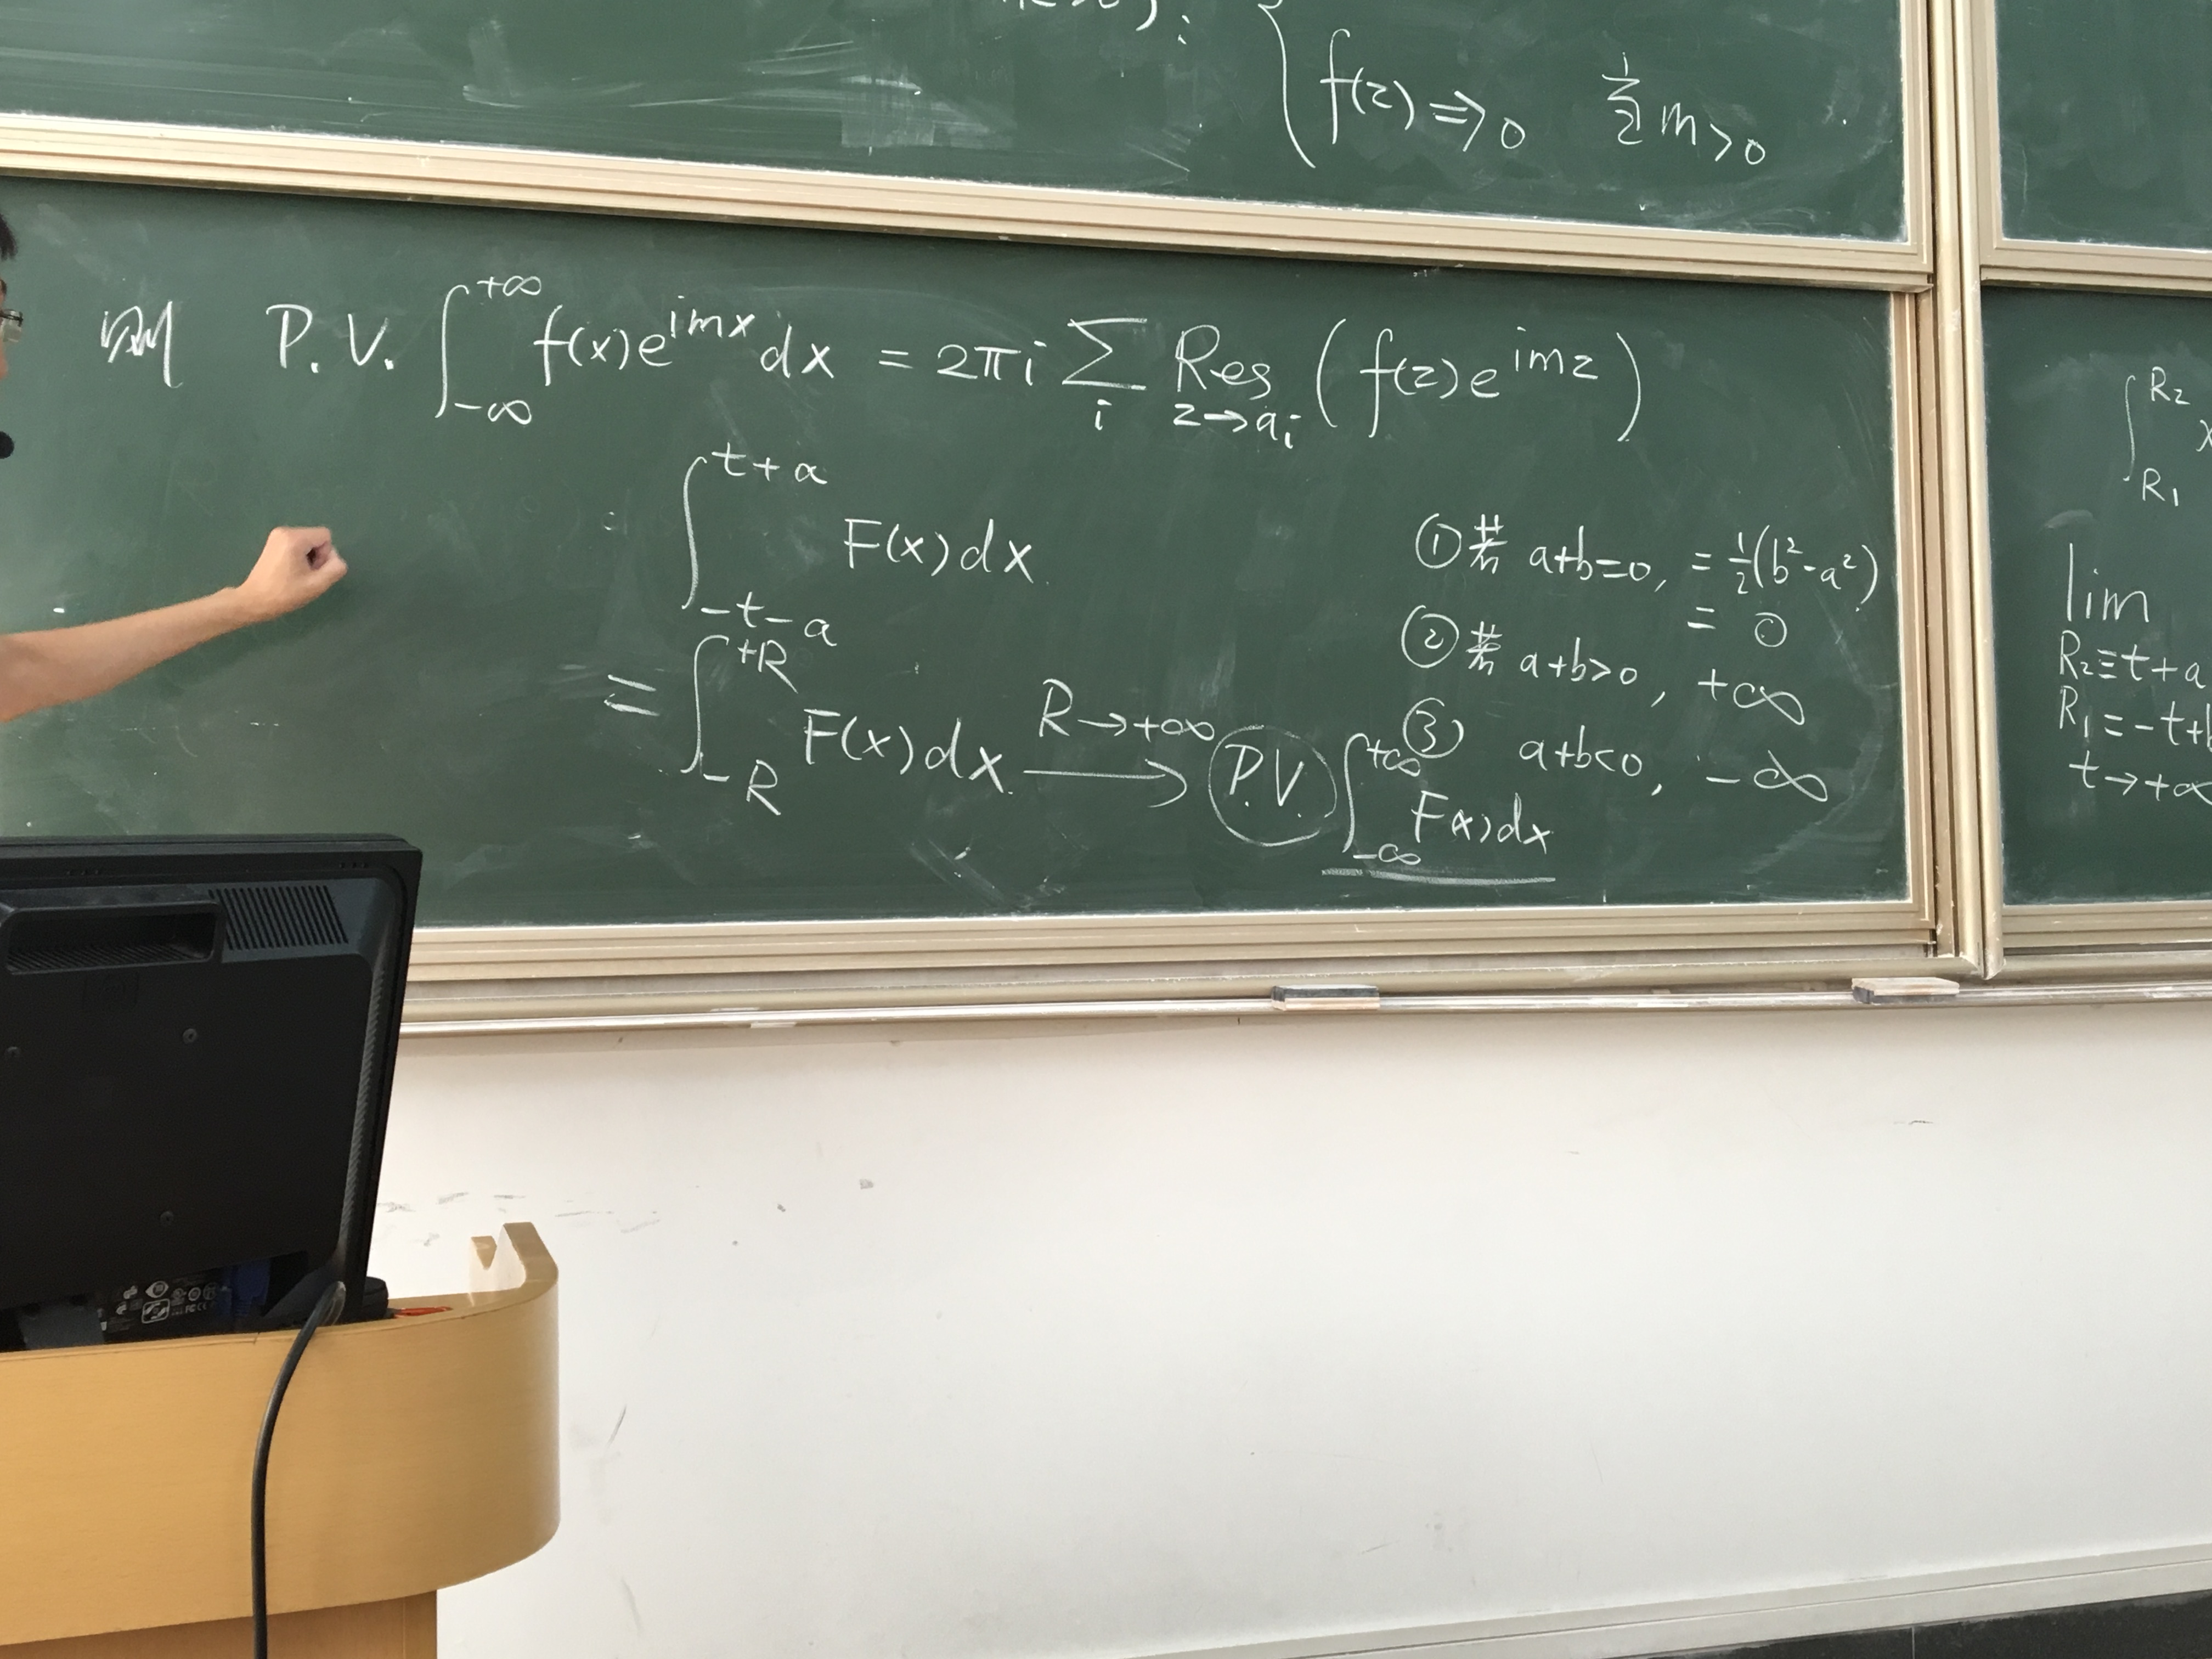 f(z) ⇒ 0 当 m>0
则 P.V. ∫_{-∞}^{+∞} f(x)e^{imx}dx = 2πi ∑_i Res_{z→a_i} (f(z)e^{imz})
= ∫_{-t-a}^{t+a} F(x)dx
≡ ∫_{-R}^{+R} F(x)dx R→+∞ ⟶ P.V. ∫_{-∞}^{+∞} F(x)dx
①若 a+b=0, = ½(b²-a²)
= 0
②若 a+b>0, +∞
③ a+b<0, -∞
∫_{R₁}^{R₂} x
lim
R₂≡t+a
R₁=-t+b
t→+∞